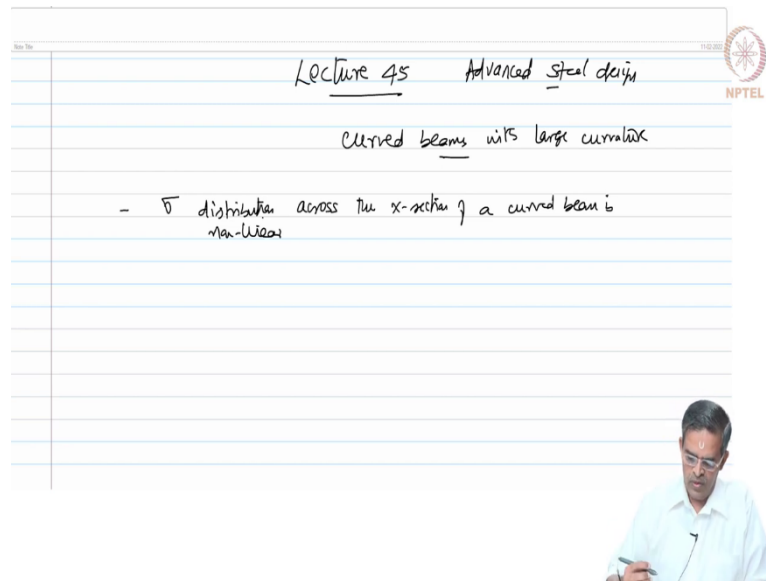 Note Title
11-02-2023
NPTEL
Lecture 45 Advanced steel design
curved beams with large curvature
- σ distribution across the x-section of a curved beam is
non-linear